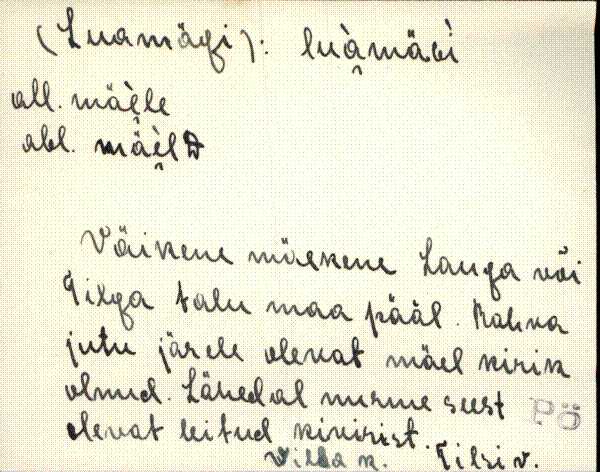 (Luamägi): luàmäGì
all. mäèle
abl. mäèlD
Väikene mäekene Lauga või
Tilga talu maa pääl. Rahva
jutu järele olevat mäel kirik
olnud. Lähedal nurme seest
olevat leitud kivirist.
Pö
Villa k. Tilsi v.